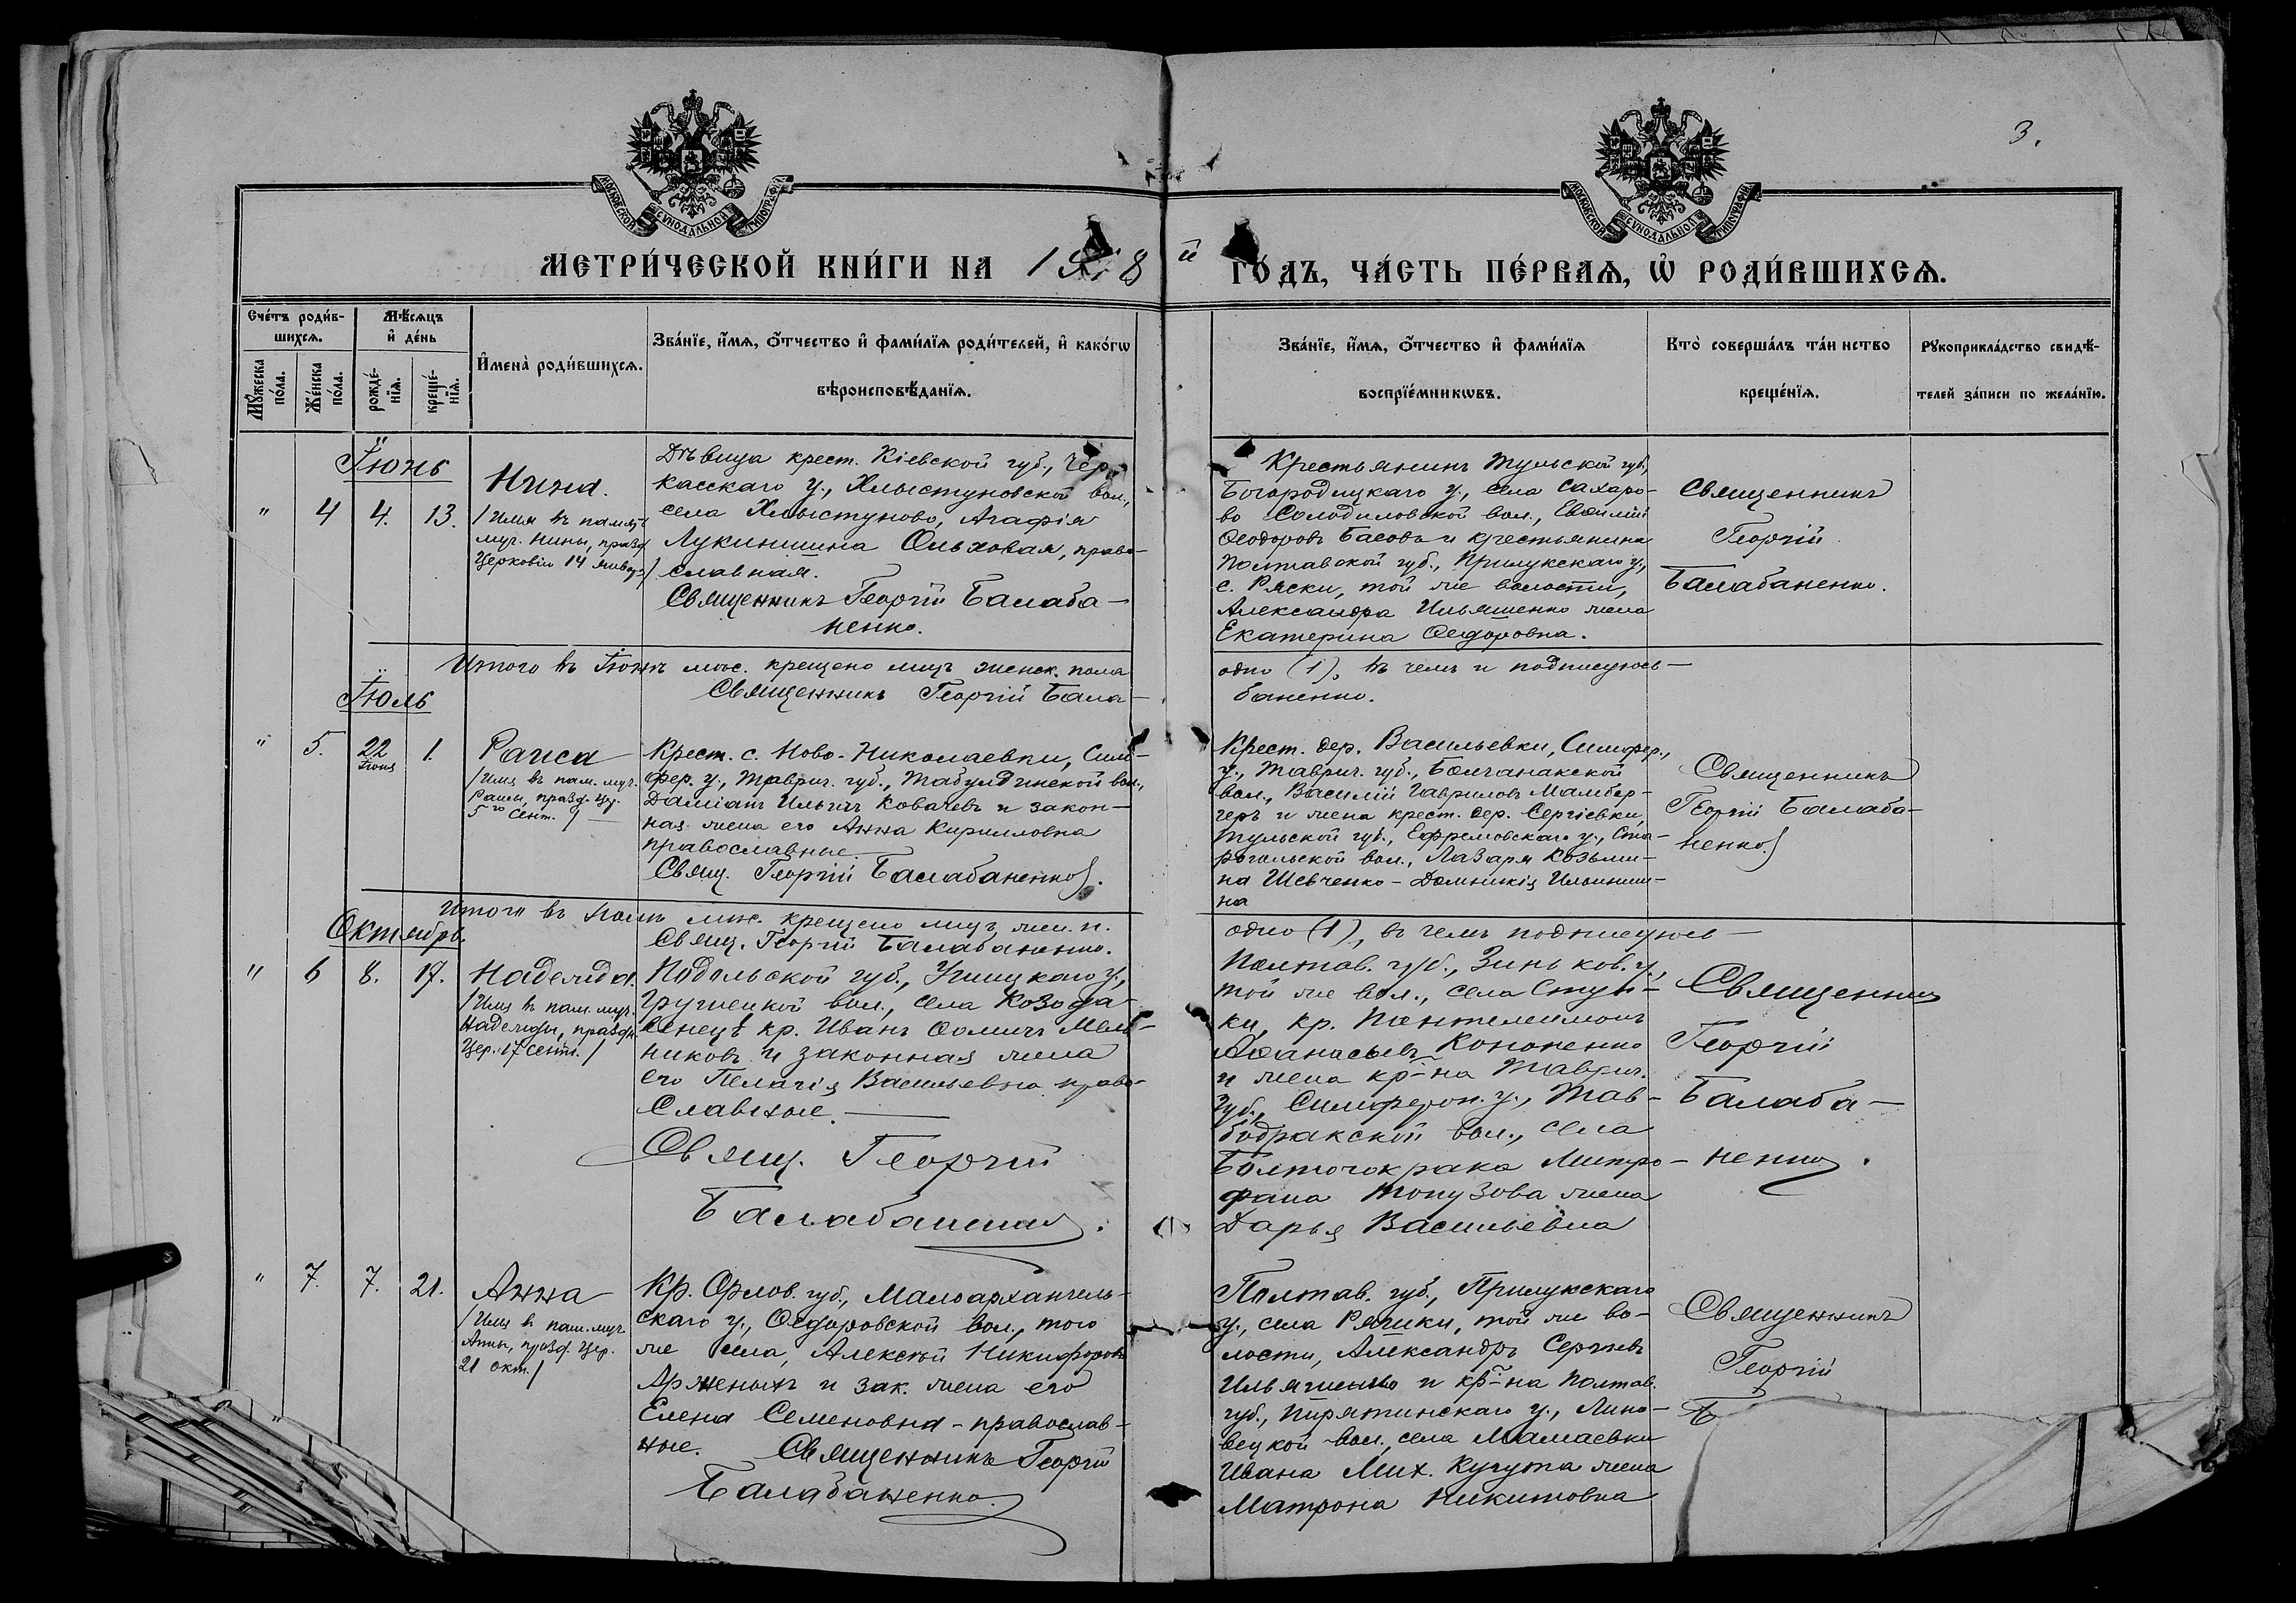 3.
МОСКОВСКОЙ СѴНОДАЛЬНОЙ ТИПОГРАФІИ
МОСКОВСКОЙ СѴНОДАЛЬНОЙ ТИПОГРАФІИ
МЕТРИ́ЧЕСКОЙ КНИ́ГИ НА 1918 й ГО́ДЪ, ЧА́СТЬ ПЕ́РВАѦ, Ѡ҆ РОДИ́ВШИХСѦ.
Сче́тъ роди́в-
шихсѧ.
Мꙋ́жеска по́ла.
Же́нска по́ла.
Мѣ́сѧцъ
и҆ де́нь
рожде́-
нїѧ.
креще́-
нїѧ.
И҆мена̀ роди́вшихсѧ.
Зва́нїе, и҆́мѧ, ѻ҆́тчество и҆ фами́лїѧ роди́телей, и҆ како́гѡ
вѣроисповѣ́данїѧ.
Зва́нїе, и҆́мѧ, ѻ҆́тчество и҆ фами́лїѧ
воспрїе́мникѡвъ.
Кто̀ соверша́лъ та́инство
креще́нїѧ.
Рꙋкоприкла́дство свидѣ́-
телей за́писи по жела́нїю.
Іюнь
" 4 4. 13.
Нина.
/Имя въ память
муч. Нины, празд.
Церковію 14 января/
Дѣвица крест. Кіевской губ., Чер-
касскаго у., Хлыстуновской вол.,
села Хлыстуново, Агафія
Лукинишна Ольховая, право-
славная.
Священникъ Георгій Балаба-
ненко.
Крестьянинъ Тульской губ.,
Богородицкаго у., села Сахаро-
во Солодиловской вол., Евѳимій
Ѳеодоровъ Басовъ и крестьянина
Полтавской губ., Прилукскаго у.,
с. Ряски, той же волости,
Александра Ильяшенко жена
Екатерина Ѳедоровна.
Священникъ
Георгій
Балабаненко.
Итого въ Іюнѣ мѣс. крещено лицъ женск. пола
одно (1), въ чемъ и подписуюсь —
Священникъ Георгій Бала-
баненко.
Іюль
" 5. 22 Іюня 1.
Раиса
/Имя въ пам. муч.
Раисы, празд. Цер.
5го Сент./
Крест. с. Ново-Николаевки, Сим-
фер. у., Таврич. губ., Табулдинской вол.,
Даміанъ Ильичъ Ковалевъ и закон-
ная жена его Анна Кирилловна
православные.
Свящ. Георгій Балабаненко.
Крест. дер. Васильевки, Симфер.,
у., Таврич. губ., Болчанакской
вол., Василій Гавриловъ Мамбер-
геръ и жена крест. дер. Сергіевки,
Тульской губ., Ефремовскаго у., Ста-
рогольской вол., Лазаря Козьми-
на Шевченко — Домникія Ильиниш-
на
Священникъ
Георгій Балаба-
ненко
Итого въ Іюлѣ мѣс. крещено лицъ жен. п.
одно (1), въ чемъ подписуюсь —
Свящ. Георгій Балабаненко.
Октябрь
" 6 8. 17.
Надежда.
/Имя въ пам. муч.
Надежды, праздн.
Цер. 17 сент./
Подольской губ., Ушицкаго у.,
вол., села
кр. Иванъ Ѳомичъ Мель-
никовъ и законная жена
его Пелагія Васильевна право-
славные.
Свящ. Георгій
Балабаненко.
Полтав. губ., Зиньков. у.,
той же вол., села Ступ-
ки, кр. Пантелеимонъ
Аѳанасьевъ Кононенко
и жена кр-на Таврич.
губ., Симфероп. у., Тав-
бодракской вол., села
Болточокрака Митро-
фана Топузова жена
Дарья Васильевна
Священникъ
Георгій
Балаба-
ненко.
" 7. 7. 21.
Анна
/Имя въ пам. муч.
Анны, празд. Цер.
21 окт./
Кр. Орлов. губ., Малоархангель-
скаго у., Ѳедоровской вол., того
же села, Алексѣй Никифоровъ
Арженыхъ и зак. жена его
Елена Семеновна — православ-
ные. Священникъ Георгій
Балабаненко.
Полтав. губ., Прилукскаго
у., села Ряшки, той же во-
лости, Александръ Сергѣевъ
Ильяшенко и кр-на Полтав.
губ., Пирятинскаго у., Лино-
вецкой вол., села Мамаевки
Ивана Мих. Кучута жена
Матрона Никитовна
Священникъ
Георгій
Б